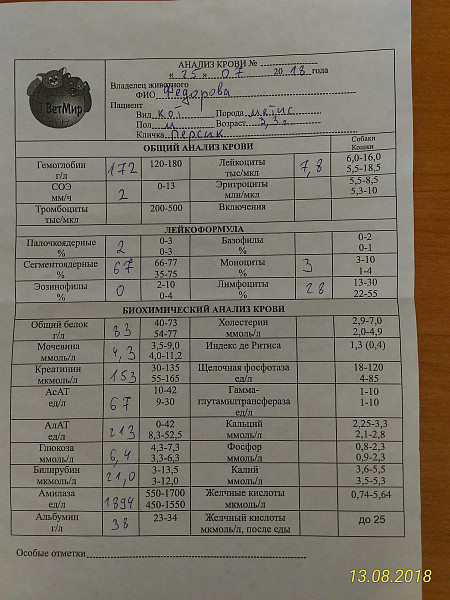 ВетМир
АНАЛИЗ КРОВИ №
« 25 » 07 2018 года
Владелец животного
ФИО Федорова
Пациент
Вид кот Порода метис
Пол м Возраст 3,3 г.
Кличка Персик
ОБЩИЙ АНАЛИЗ КРОВИ Собаки Кошки
Гемоглобин г/л 172 120-180 Лейкоциты тыс/мкл 7,8 6,0-16,0 5,5-18,5
СОЭ мм/ч 2 0-13 Эритроциты млн/мкл 5,5-8,5 5,3-10
Тромбоциты тыс/мкл 200-500 Включения
ЛЕЙКОФОРМУЛА
Палочкоядерные % 2 0-3 0-3 Базофилы % 0-2 0-1
Сегментоядерные % 67 66-77 35-75 Моноциты % 3 3-10 1-4
Эозинофилы % 0 2-10 0-4 Лимфоциты % 28 13-30 22-55
БИОХИМИЧЕСКИЙ АНАЛИЗ КРОВИ
Общий белок г/л 83 40-73 54-77 Холестерин ммоль/л 2,9-7,0 2,0-4,9
Мочевина ммоль/л 4,3 3,5-9,0 4,0-11,2 Индекс де Ритиса 1,3 (0,4)
Креатинин мкмоль/л 153 30-135 55-165 Щелочная фосфотаза ед/л 18-120 4-85
АсАТ ед/л 67 10-42 9-30 Гамма-глутамилтрансфераза ед/л 1-10 1-10
АлАТ ед/л 213 0-42 8,3-52,5 Кальций ммоль/л 2,25-3,3 2,1-2,8
Глюкоза ммоль/л 6,4 4,3-7,3 3,3-6,3 Фосфор ммоль/л 0,8-2,3 0,9-2,3
Билирубин мкмоль/л 21,0 3-13,5 3-12,0 Калий ммоль/л 3,6-5,5 3,5-5,3
Амилаза ед/л 1894 550-1700 450-1550 Желчные кислоты мкмоль/л 0,74-5,64
Альбумин г/л 38 23-34 Желчный кислоты мкмоль/л, после еды до 25
Особые отметки
13.08.2018